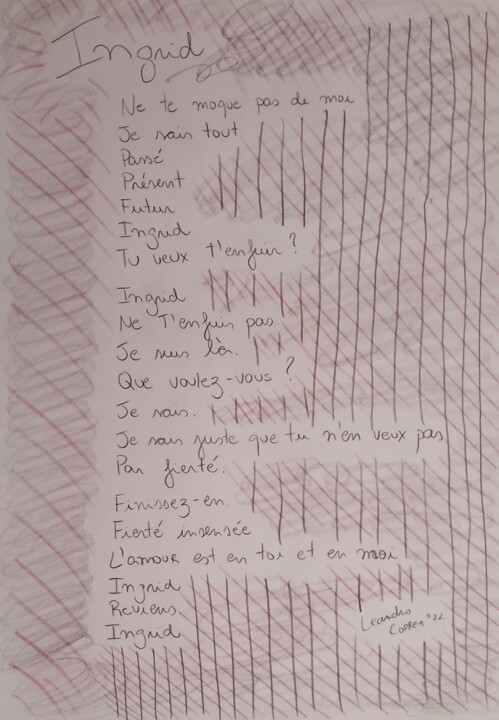 Ingrid
Ne te moque pas de moi
Je sais tout
Passé
Présent
Futur
Ingrid
Tu veux t'enfuir ?
Ingrid
Ne T'enfuis pas
Je suis là.
Que voulez-vous ?
Je sais.
Je sais juste que tu n'en veux pas
Par fierté.
Finissez-en.
Fierté insensée
L'amour est en toi et en moi
Ingrid
Reviens.
Ingrid
Leandro